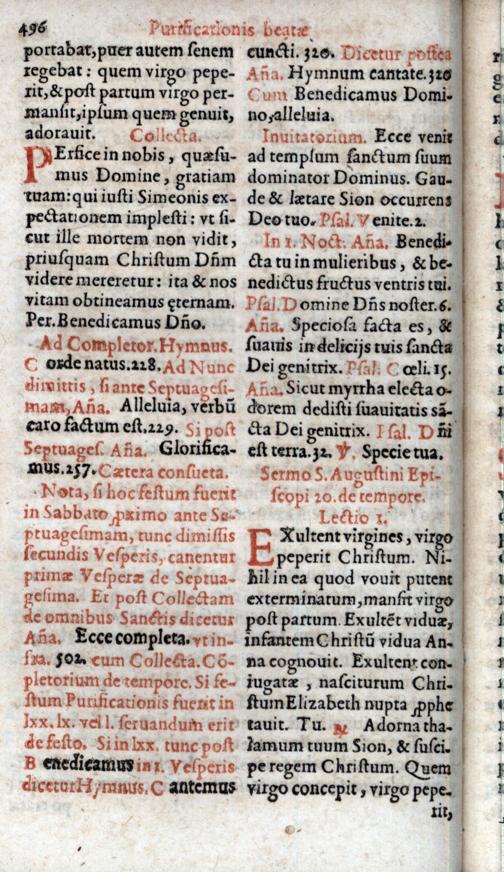 496 Purificationis beatæ
portabat, puer autem senem
regebat: quem virgo pepe-
rit, & post partum virgo per-
mansit, ipsum quem genuit,
adorauit. Collecta.
PErfice in nobis, quæsu-
mus Domine, gratiam
tuam: qui iusti Simeonis ex-
pectationem implesti: vt si-
cut ille mortem non vidit,
priusquam Christum Dñm
videre mereretur: ita & nos
vitam obtineamus ęternam.
Per. Benedicamus Dño.
Ad Completor. Hymnus.
Corde natus. 228. Ad Nunc
dimittis, si ante Septuagesi-
mam, Aña. Alleluia, verbũ
caro factum est. 229. Si post
Septuages. Aña. Glorifica-
mus. 257. Cætera consueta.
Nota, si hoc festum fuerit
in Sabbato ꝓximo ante Se-
ptuagesimam, tunc dimissis
secundis Vesperis, canentur
primæ Vesperæ de Septua-
gesima. Et post Collectam
de omnibus Sanctis dicetur
Aña. Ecce completa. vt in-
fra. 502. cum Collecta. Cõ-
pletorium de tempore. Si fe-
stum Purificationis fuerit in
lxx. lx. vel l. seruandum erit
de festo. Si in lxx. tunc post
Benedicamus in 1. Vesperis
dicetur Hymnus. Cantemus
cuncti. 320. Dicetur postea
Aña. Hymnum cantate. 320
Cum Benedicamus Domi-
no, alleluia.
Inuitatorium. Ecce venit
ad templum sanctum suum
dominator Dominus. Gau-
de & lætare Sion occurrens
Deo tuo. Psal. Venite. 2.
In 1. Noct. Aña. Benedi-
cta tu in mulieribus, & be-
nedictus fructus ventris tui.
Psal. Domine Dñs noster. 6.
Aña. Speciosa facta es, &
suauis in delicijs tuis sancta
Dei genitrix. Psal. Cœli. 15.
Aña. Sicut myrrha electa o-
dorem dedisti suauitatis sã-
cta Dei genitrix. Psal. Dñi
est terra. 32. ℣. Specie tua.
Sermo S. Augustini Epi-
scopi 20. de tempore.
Lectio 1.
EXultent virgines, virgo
peperit Christum. Ni-
hil in ea quod vouit putent
exterminatum, mansit virgo
post partum. Exultẽt viduæ,
infantem Christũ vidua An-
na cognouit. Exultent con-
iugatæ, nasciturum Chri-
stum Elizabeth nupta ꝓphe
tauit. Tu. ℟ Adorna tha-
lamum tuum Sion, & susci-
pe regem Christum. Quem
virgo concepit, virgo pepe-
rit,